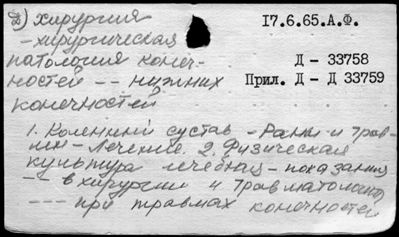 2) хирургия
17.6.65.А.Ф.
- хирургическая
патология конеч-
Д - 33758
ностей -- нижних
Прил. Д - Д 33759
конечностей
1. Коленный сустав - Раны и трав-
мы - Лечение. 2. Физическая
культура лечебная - показания
--- в хирургии и травматологии
--- при травмах конечностей